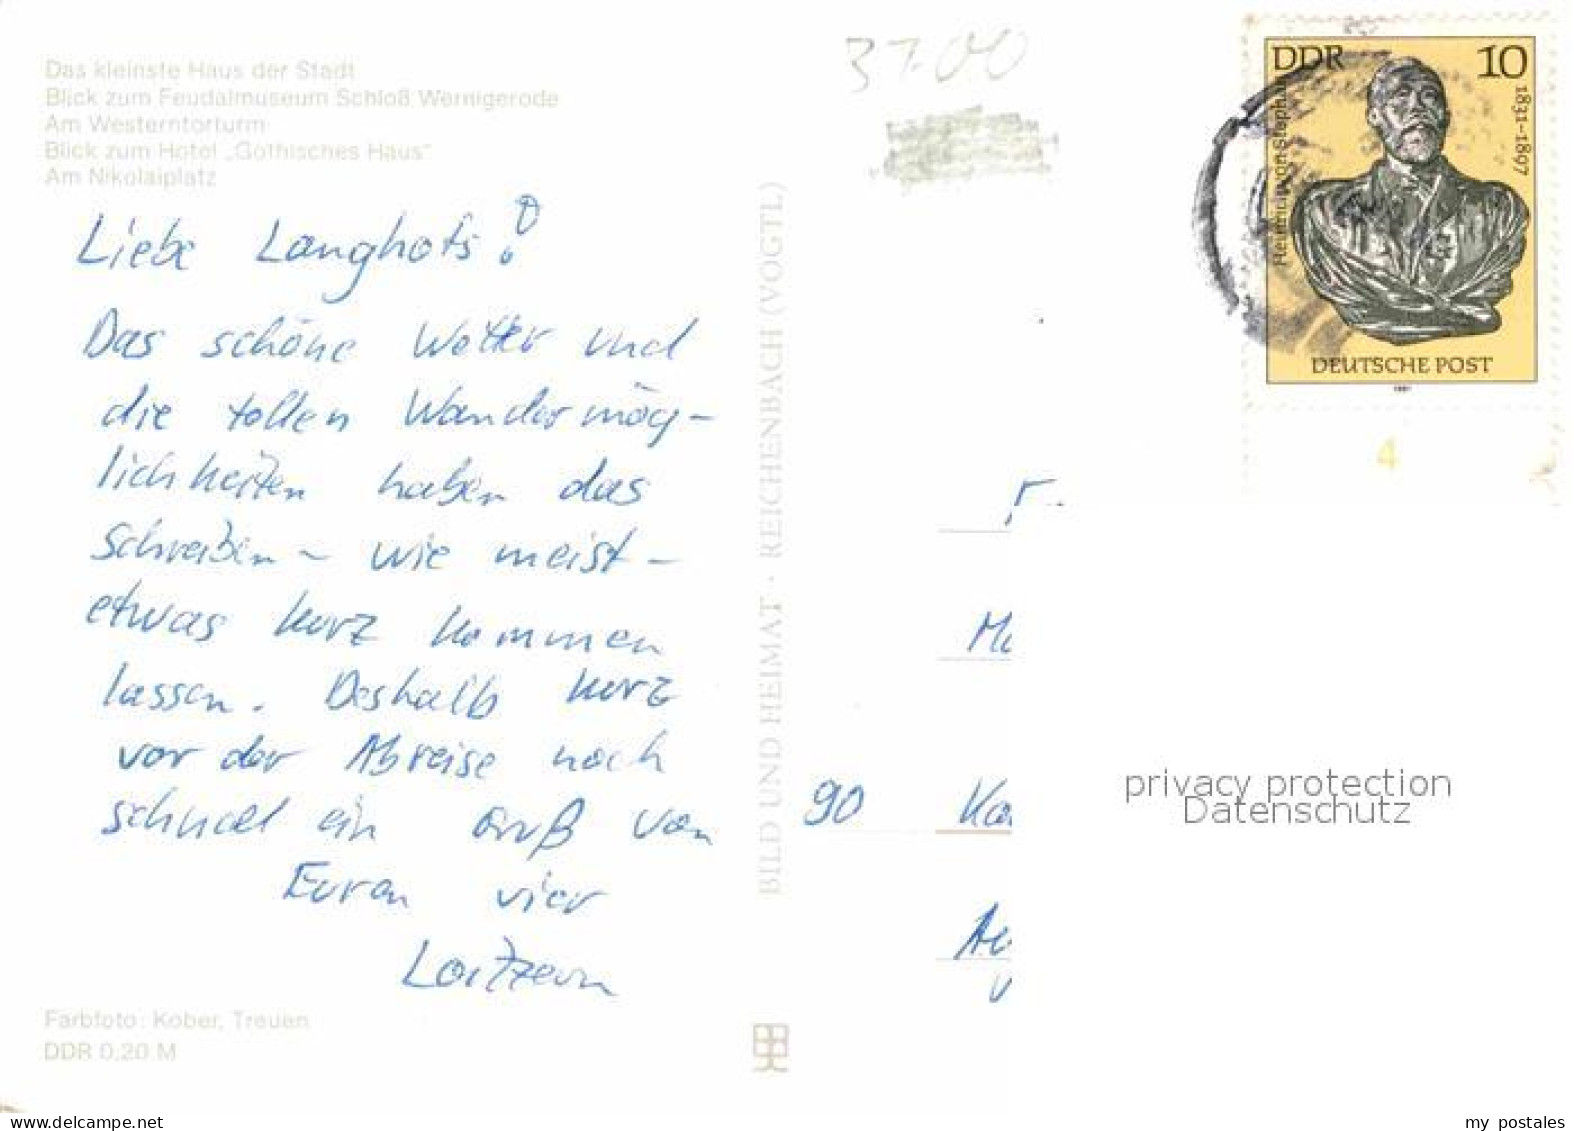 Das kleinste Haus der Stadt
Blick zum Feudalmuseum Schloß Wernigerode
Am Westerntorturm
Blick zum Hotel „Gothisches Haus"
Am Nikolaiplatz
Liebe Langhofs!
Das schöne Wetter und
die tollen Wandermög-
lichkeiten haben das
Schreiben - wie meist -
etwas kurz kommen
lassen. Deshalb kurz
vor der Abreise noch
schnell ein Gruß von
Euren vier
Farbfoto: Kober, Treuen
DDR 0,20 M
BILD UND HEIMAT · REICHENBACH (VOGTL)
37.00
DDR 10
Heinrich von Stephan
1831-1897
DEUTSCHE POST
1981
4
90
privacy protection
Datenschutz
www.delcampe.net
my_postales